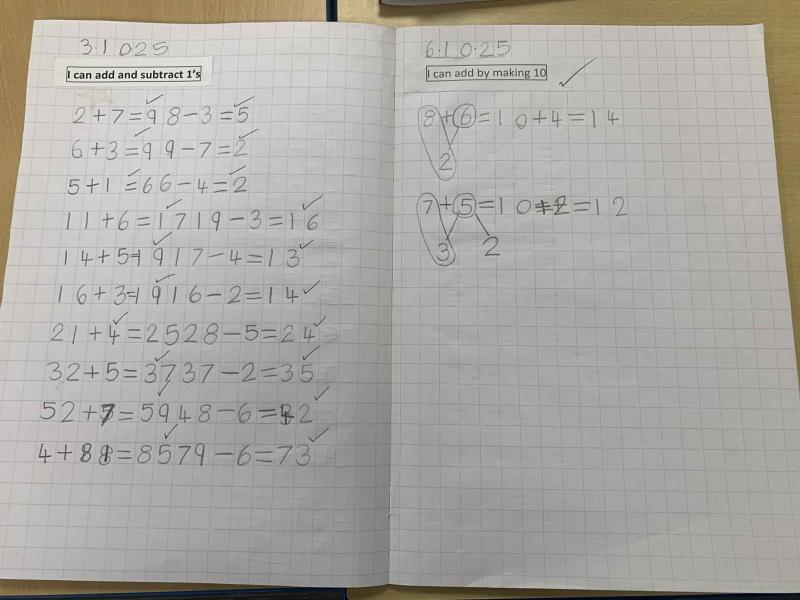 3.10 25
I can add and subtract 1's
2+7=9 8-3=5
6+3=9 9-7=2
5+1=6 6-4=2
11+6=17 19-3=16
14+5=19 17-4=13
16+3=19 16-2=14
21+4=25 28-5=24
32+5=37 37-2=35
52+7=59 48-6=42
4+81=85 79-6=73
6.10.25
I can add by making 10
8+6=10+4=14
2
7+5=10+2=12
3 2